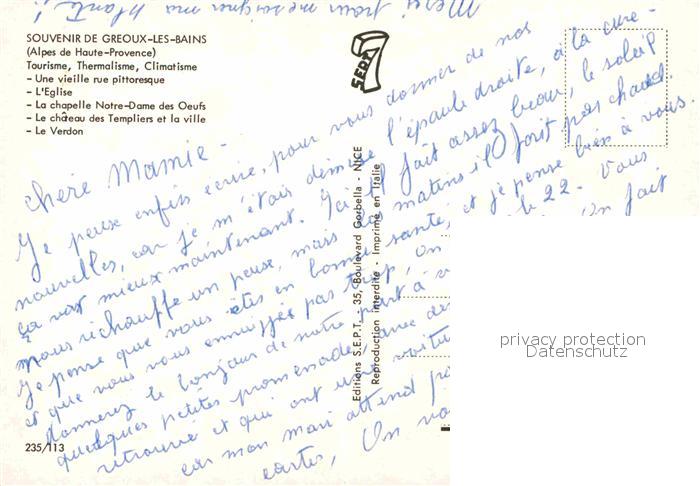 Merci pour me soigner ma plante !
SOUVENIR DE GREOUX-LES-BAINS
(Alpes de Haute-Provence)
Tourisme, Thermalisme, Climatisme
- Une vieille rue pittoresque
- L'Eglise
- La chapelle Notre-Dame des Oeufs
- Le château des Templiers et la ville
- Le Verdon
SEPT
Editions S.E.P.T. - 35, Boulevard Gorbella - NICE
Reproduction interdite - Imprimé en Italie
chère Mamie -
Je peux enfin écrire, pour vous donner de nos
nouvelles, car je m'étais démise l'épaule droite, à la cure -
ça va mieux maintenant. Ici il fait assez beau, le soleil
nous réchauffe un peu, mais les matins il fait pas chaud.
Je pense que vous êtes en bonne santé, et je pense bien à vous.
et que vous vous ennuyez pas trop, On le 22 - Vous
donnerez le bonjour de notre part à On fait
quelques petites promenades, avec des
retrouvé et qui ont une voiture
car mon mari attend
cartes, On
235/113
privacy protection
Datenschutz